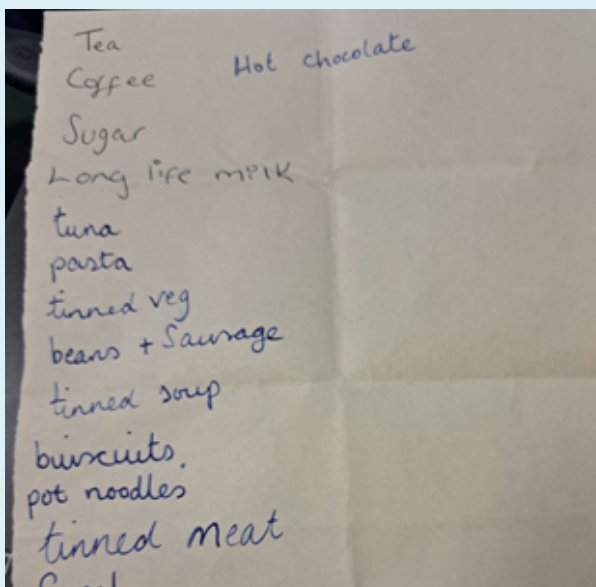 Tea
Coffee Hot chocolate
Sugar
Long life milk
tuna
pasta
tinned veg
beans + Sausage
tinned soup
buiscuits.
pot noodles
tinned meat